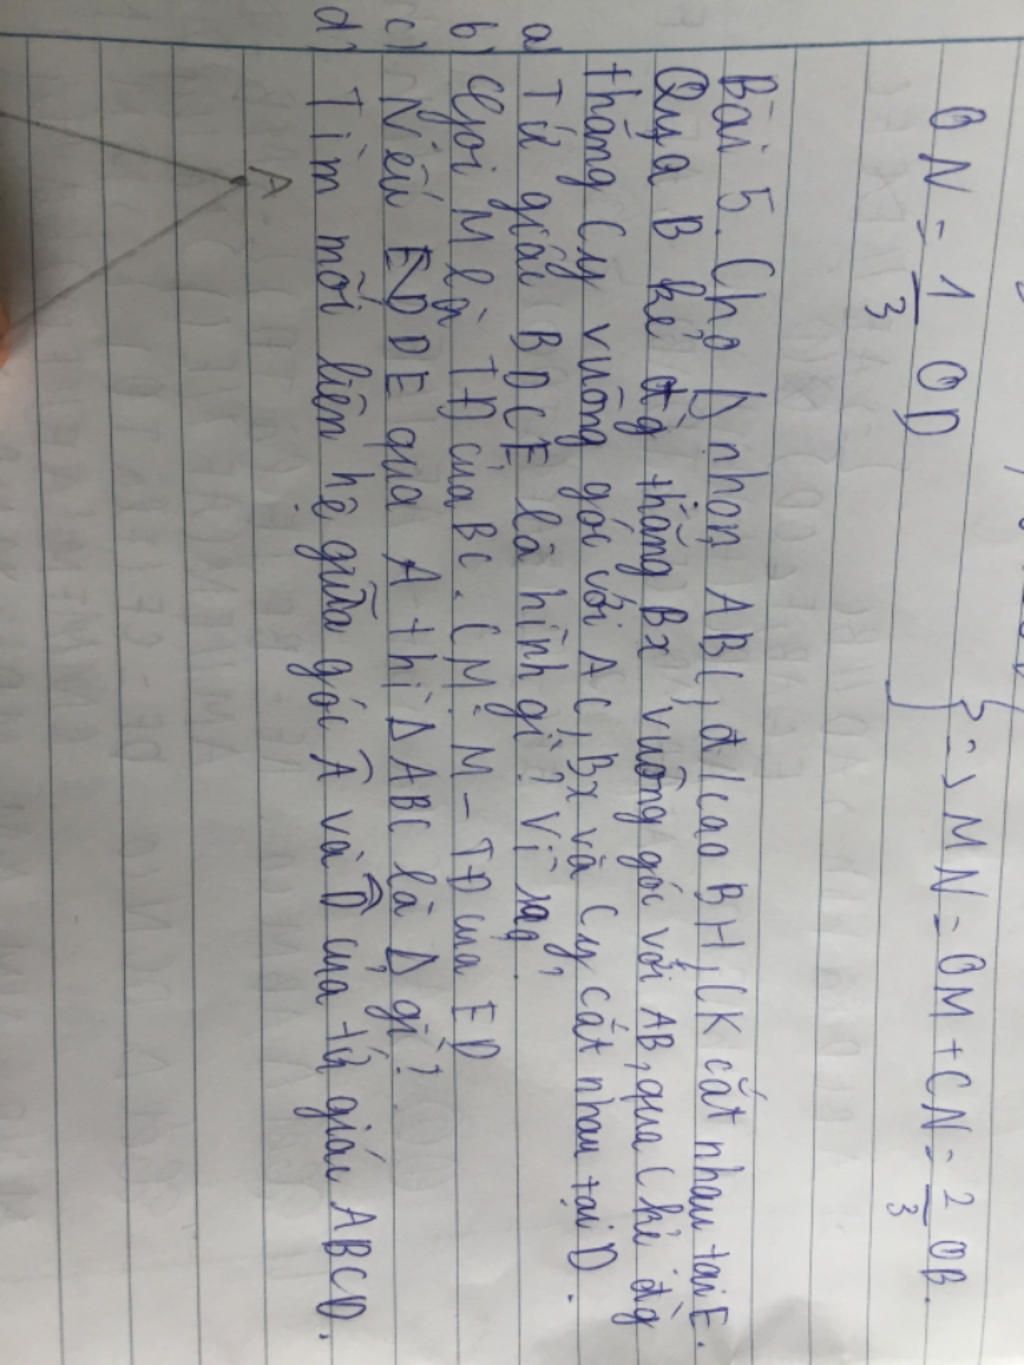 ON = 1/3 OD
} => MN = OM + CN = 2/3 OB.
Bài 5. Cho Δ nhọn ABC, đ/cao BH, CK cắt nhau tại E.
Qua B kẻ đg thẳng Bx vuông góc với AB, qua C kẻ đg
thẳng Cy vuông góc với AC, Bx và Cy cắt nhau tại D.
a) Tứ giác BDCE là hình gì? Vì sao?
b) Gọi M là TĐ của BC. CM: M - TĐ của ED
c) Nếu DE qua A thì Δ ABC là Δ gì?
d) Tìm mối liên hệ giữa góc Â và D̂ của tứ giác ABCD.
A